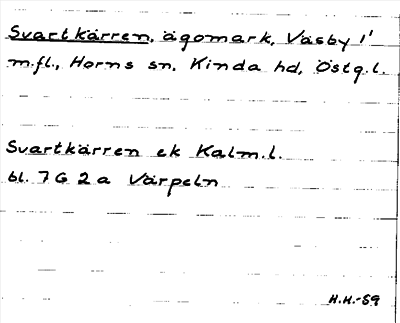 Svartkärren, ägomark, Väsby 1¹
m.fl., Horns sn, Kinda hd, Östg.l.
Svartkärren ek Kalm.l.
bl. 7G 2a Värpeln
H.H.-59